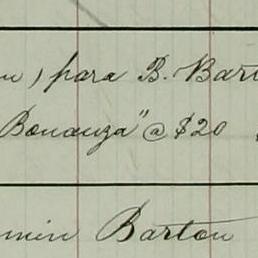 ) para B. Bart
Bonanza" @ $20
min Barton